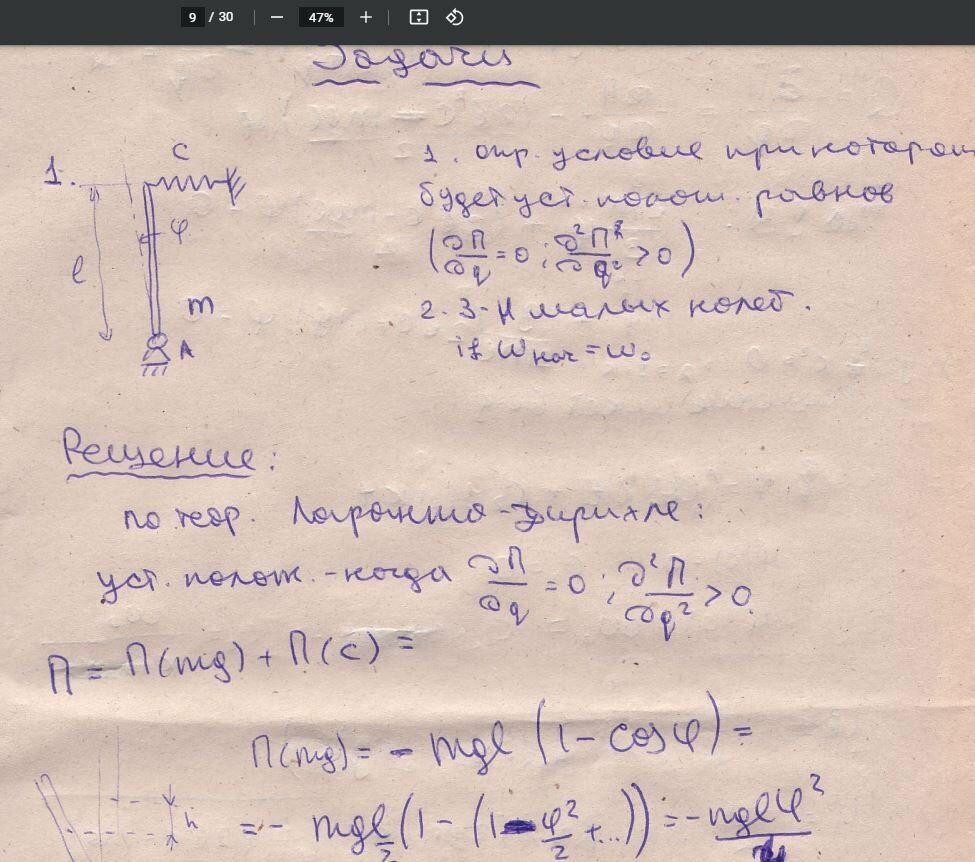 9 / 30 47%
Задачи
1.
c
φ
l
m
A
1. опр. условие при котором
будет уст. полож. равнов
(∂П/∂q = 0 ; ∂²П/∂q² > 0)
2. З-н малых колеб.
if ω нач = ω₀
Решение:
по теор. Лагранжа-Дирихле:
уст. полож. - когда ∂П/∂q = 0 ; ∂²П/∂q² > 0
П = П(mg) + П(c) =
П(mg) = - mgl (1 - cosφ) =
h
= - mgl/2 (1 - (1 - φ²/2 + ...)) = - mglφ²